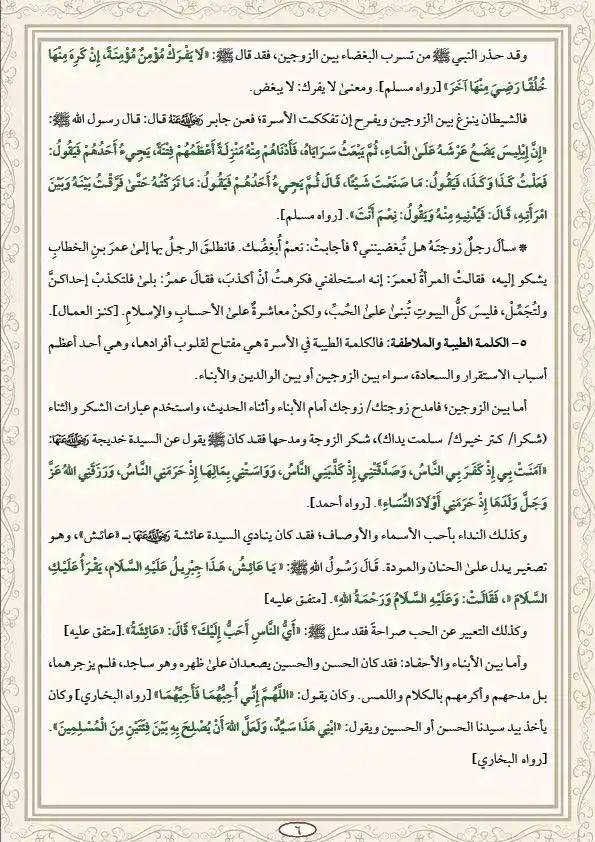 وقد حذر النبي ﷺ من تسرب البغضاء بين الزوجين، فقد قال ﷺ: «لَا يَفْرَكْ مُؤْمِنٌ مُؤْمِنَةً، إِنْ كَرِهَ مِنْهَا
خُلُقًا رَضِيَ مِنْهَا آخَرَ» [رواه مسلم]. ومعنى لا يفرك: لا يبغض.
فالشيطان ينزغ بين الزوجين ويفرح إن تفككت الأسرة؛ فعن جابر رَضِيَ اللهُ عَنْهُ قال: قال رسول الله ﷺ:
«إِنَّ إِبْلِيسَ يَضَعُ عَرْشَهُ عَلَى الْمَاءِ، ثُمَّ يَبْعَثُ سَرَايَاهُ، فَأَدْنَاهُمْ مِنْهُ مَنْزِلَةً أَعْظَمُهُمْ فِتْنَةً، يَجِيءُ أَحَدُهُمْ فَيَقُولُ:
فَعَلْتُ كَذَا وَكَذَا، فَيَقُولُ: مَا صَنَعْتَ شَيْئًا، قَالَ ثُمَّ يَجِيءُ أَحَدُهُمْ فَيَقُولُ: مَا تَرَكْتُهُ حَتَّى فَرَّقْتُ بَيْنَهُ وَبَيْنَ
امْرَأَتِهِ، قَالَ: فَيُدْنِيهِ مِنْهُ وَيَقُولُ: نِعْمَ أَنْتَ». [رواه مسلم].
* سألَ رجلٌ زوجتَهُ هل تُبغضينني؟ فأجابتْ: نعمْ أُبغِضُك. فانطلقَ الرجلُ بها إلىٰ عمرَ بنِ الخطابِ
يشكو إليه، فقالتْ المرأةُ لعمرَ: إنه استحلفني فكرهتُ أنْ أكذبَ، فقالَ عمرُ: بلىٰ فلتكذبْ إحداكنَّ
ولتُجَمِّلْ، فليسَ كلُّ البيوتِ تُبنىٰ علىٰ الحُبِّ، ولكنْ معاشرةٌ علىٰ الأحسابِ والإسلامِ. [كنز العمال].
٥- الكلمة الطيبة والملاطفة: فالكلمة الطيبة في الأسرة هي مفتاح لقلوب أفرادها، وهي أحد أعظم
أسباب الاستقرار والسعادة، سواء بين الزوجين أو بين الوالدين والأبناء.
أما بين الزوجين؛ فامدح زوجتك/ زوجك أمام الأبناء وأثناء الحديث، واستخدم عبارات الشكر والثناء
(شكرا/ كتر خيرك/ سلمت يداك)، شكر الزوجة ومدحها فقد كان ﷺ يقول عن السيدة خديجة رَضِيَ اللهُ عَنْهَا:
«آمَنَتْ بِي إِذْ كَفَرَ بِي النَّاسُ، وَصَدَّقَتْنِي إِذْ كَذَّبَنِي النَّاسُ، وَوَاسَتْنِي بِمَالِهَا إِذْ حَرَمَنِي النَّاسُ، وَرَزَقَنِي اللهُ عَزَّ
وَجَلَّ وَلَدَهَا إِذْ حَرَمَنِي أَوْلَادَ النِّسَاءِ». [رواه أحمد].
وكذلك النداء بأحب الأسماء والأوصاف؛ فقد كان ينادي السيدة عائشة رَضِيَ اللهُ عَنْهَا بـ «عائش»، وهو
تصغير يدل علىٰ الحنان والمودة. قَالَ رَسُولُ اللهِ ﷺ: «يَا عَائِشُ، هَذَا جِبْرِيلُ عَلَيْهِ السَّلَام، يَقْرَأُ عَلَيْكِ
السَّلَامَ «، فَقَالَتْ: وَعَلَيْهِ السَّلَامُ وَرَحْمَةُ اللهِ». [متفق عليه]
وكذلك التعبير عن الحب صراحةً فقد سئل ﷺ: «أَيُّ النَّاسِ أَحَبُّ إِلَيْكَ؟ قَالَ: «عَائِشَةُ».[متفق عليه]
وأما بين الأبناء والأحفاد: فقد كان الحسن والحسين يصعدان علىٰ ظهره وهو ساجد، فلم يزجرهما،
بل مدحهم وأكرمهم بالكلام واللمس. وكان يقول: «اللَّهُمَّ إِنِّي أُحِبُّهُمَا فَأَحِبَّهُمَا» [رواه البخاري] وكان
يأخذ بيد سيدنا الحسن أو الحسين ويقول: «ابْنِي هَذَا سَيِّدٌ، وَلَعَلَّ اللهَ أَنْ يُصْلِحَ بِهِ بَيْنَ فِئَتَيْنِ مِنَ الْمُسْلِمِينَ».
[رواه البخاري]
٦